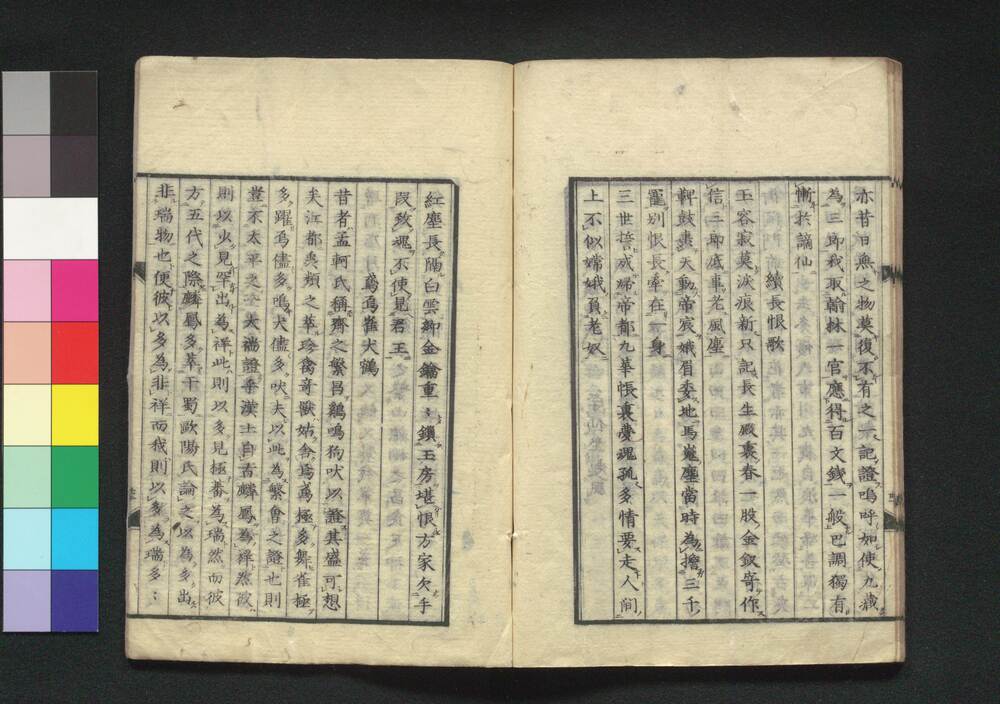 亦昔日無之物漠復不有之一記證嗚呼如使九歲
為三郎我取翰林一官應得百文錢一般巴調獨有
慚於謫仙
續長恨歌
玉容寂莫淚痕新只記長生殿裏春一股金釵寄作
信三郎底事老風塵
鞞鼓轟天動帝宸娥眉委地馬嵬塵當時為擔三千
寵別恨長牽在一身
三世誓成歸帝都九華帳裏夢魂孤多情要走人間
上不似嫦娥負老奴
紅塵長隔白雲鄉金鑰重〻鎖玉房堪恨方家欠手
段致魂不使見君王
鳶烏雀犬鶴
昔者孟軻氏稱齊之繁昌鷄鳴狗吠以證其盛可想
夫江都喪類之萃珍禽奇獸姑舍焉鳶極多舞雀極
多躍烏儘多鳴犬儘多吠夫以此為繁會之證也則
豈不太平之大瑞證乎漢土自古麟鳳為祥然或
則以火見罕出為祥此則以多見極番為瑞然而彼
方五代之際麟鳳多萃于蜀歐陽氏論之以為多出
非瑞物也便彼以多為非祥而我則以多為瑞多〻